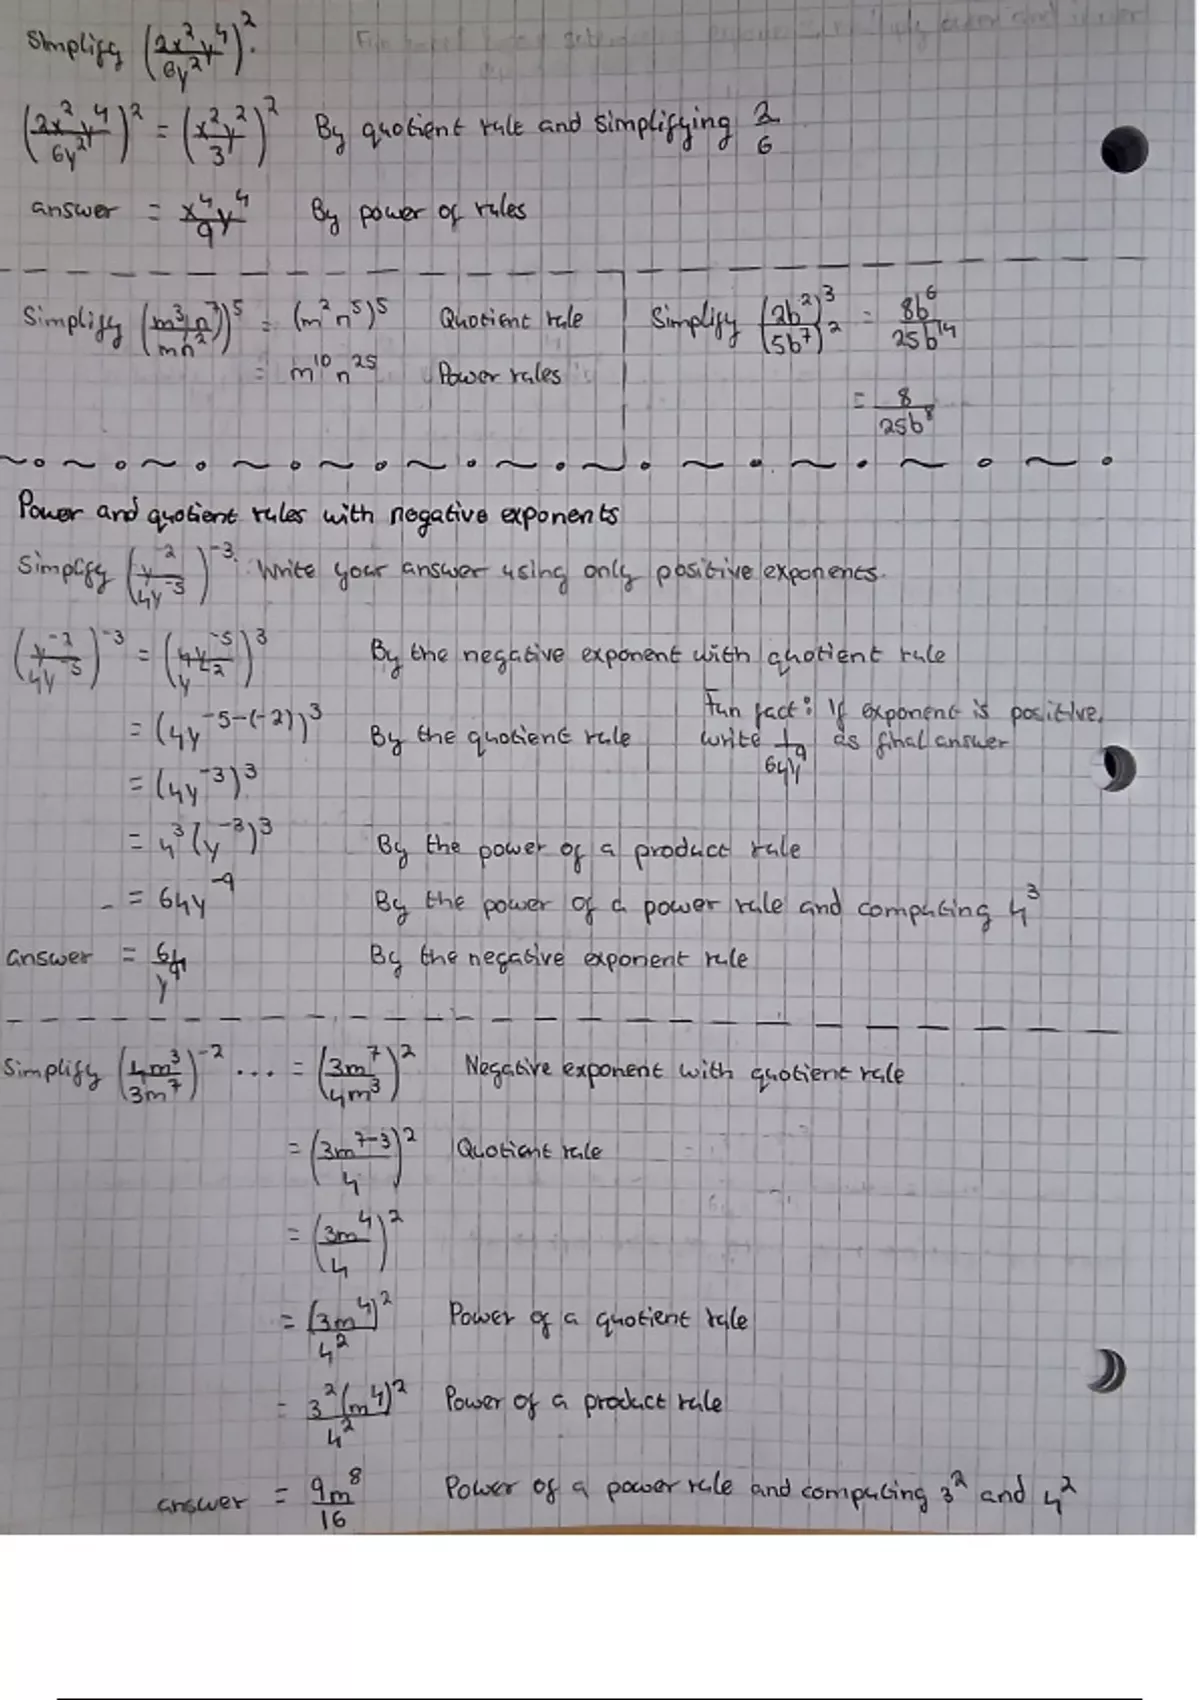 Simplify (2x²y⁴/6y²)².
(2x²y⁴/6y²)² = (x²y²/3)² By quotient rule and simplifying 2/6
answer = x⁴y⁴/9 By power of rules
Simplify (m³n⁷/mn²)⁵ = (m²n⁵)⁵ Quotient rule
= m¹⁰n²⁵ Power rules
Simplify (2b²)³/(5b⁷)² = 8b⁶/25b¹⁴
= 8/25b⁸
Power and quotient rules with negative exponents
Simplify (y⁻²/4y⁻⁵)⁻³. Write your answer using only positive exponents.
(y⁻²/4y⁻⁵)⁻³ = (4y⁻⁵/y⁻²)³ By the negative exponent with quotient rule
= (4y⁻⁵⁻⁽⁻²⁾)³ By the quotient rule
Fun fact: If exponent is positive,
write 1/64y⁹ as final answer
= (4y⁻³)³
= 4³(y⁻³)³ By the power of a product rule
= 64y⁻⁹ By the power of a power rule and computing 4³
answer = 64/y⁹ By the negative exponent rule
Simplify (4m³/3m⁷)⁻² ... = (3m⁷/4m³)² Negative exponent with quotient rule
= (3m⁷⁻³/4)² Quotient rule
= (3m⁴/4)²
= (3m⁴)²/4² Power of a quotient rule
= 3²(m⁴)²/4² Power of a product rule
answer = 9m⁸/16 Power of a power rule and computing 3² and 4²